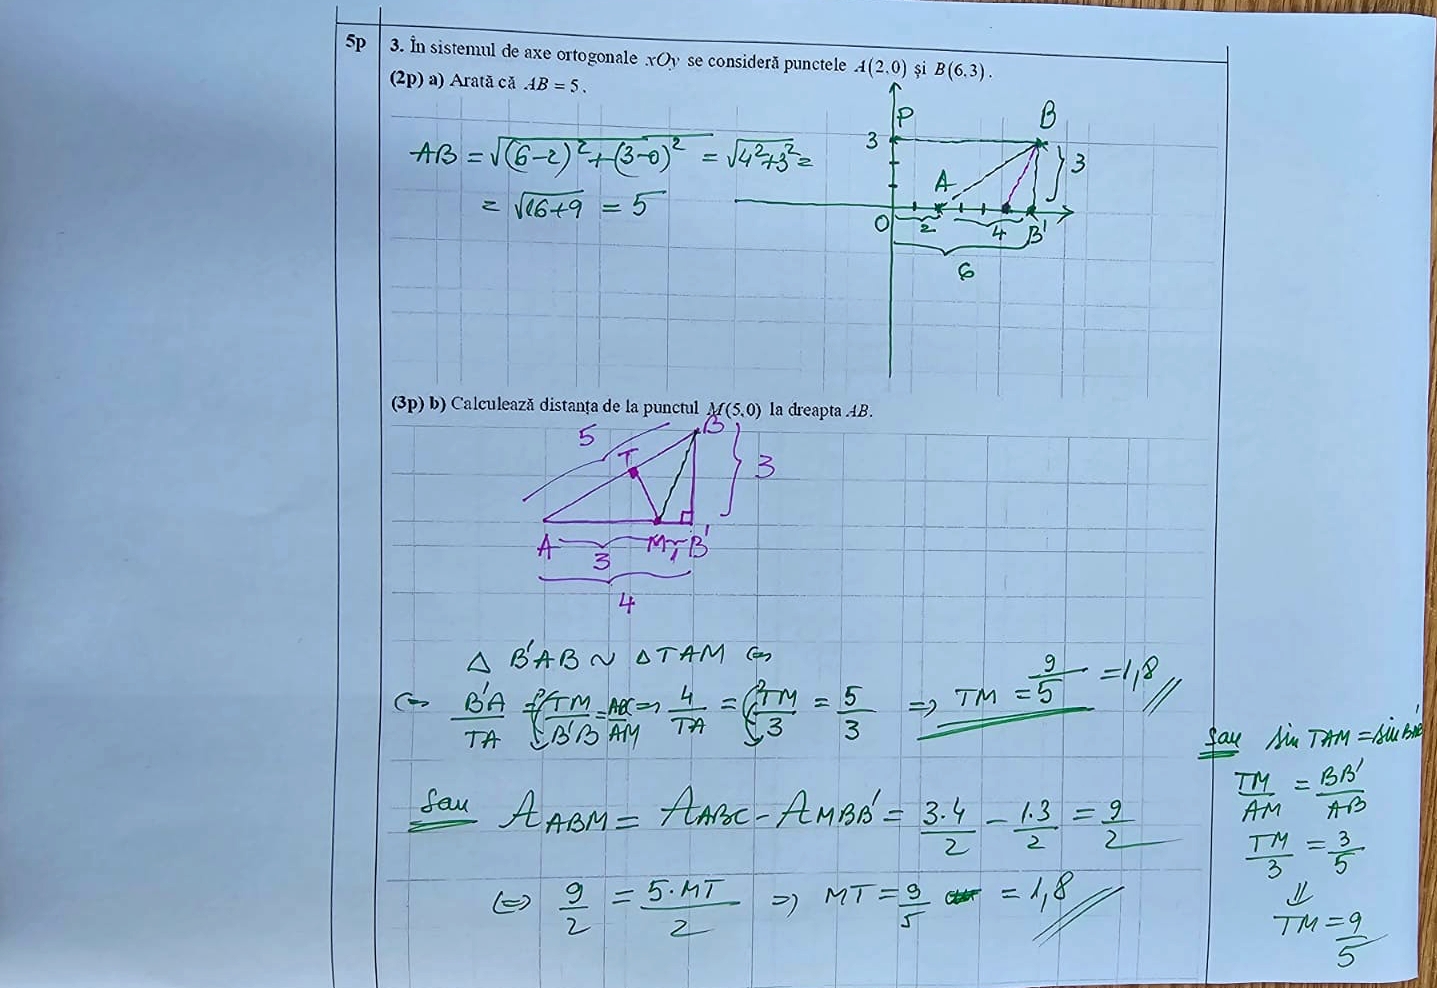 5p
3. În sistemul de axe ortogonale xOy se consideră punctele A(2,0) și B(6,3).
(2p) a) Arată că AB = 5.
AB = √(6-2)² + (3-0)² = √4²+3² =
= √16+9 = 5
P
B
3
3
A
O
2
4
B'
6
(3p) b) Calculează distanța de la punctul M(5,0) la dreapta AB.
5
B
T
3
A
3
M
1
B'
4
Δ B'AB ~ Δ TAM ⇔
⇔ B'A/TA = TM/B'B = AB/AM ⇒ 4/TA = TM/3 = 5/3 ⇒ TM = 9/5 = 1,8
Sau A ABM = A ABC - A MBB' = 3·4/2 - 1·3/2 = 9/2
⇔ 9/2 = 5·MT/2 ⇒ MT = 9/5 = 1,8
Sau sin TAM = sin BAB'
TM/AM = BB'/AB
TM/3 = 3/5
⇓
TM = 9/5